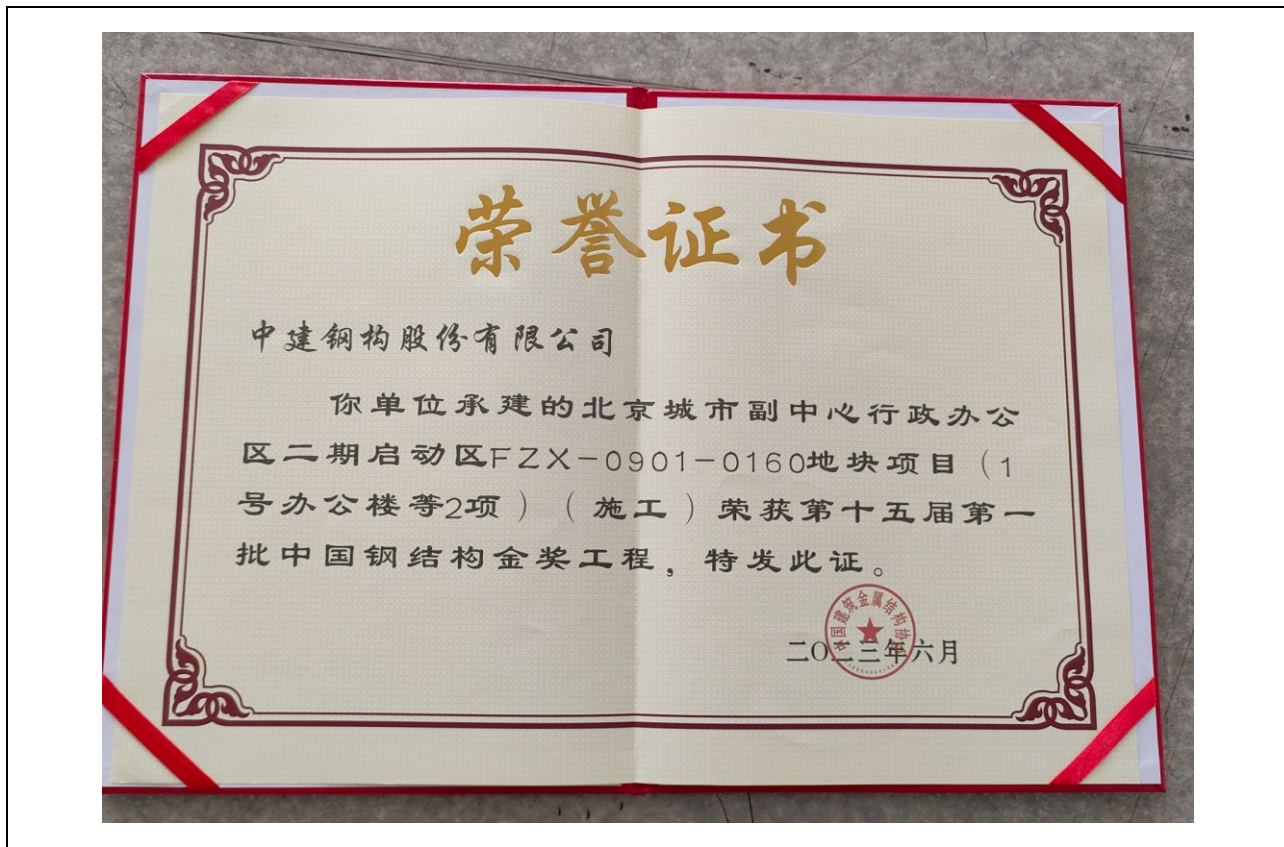 荣誉证书
中建钢构股份有限公司
你单位承建的北京城市副中心行政办公
区二期启动区FZX-0901-0160地块项目（1
号办公楼等2项）（施工）荣获第十五届第一
批中国钢结构金奖工程，特发此证。
中国建筑金属结构协会
二〇二三年六月